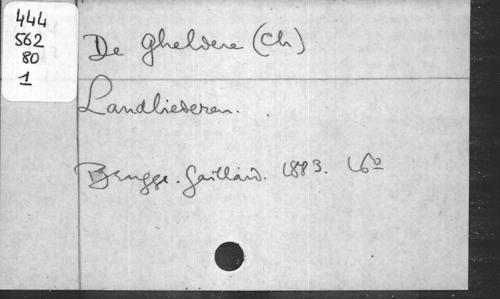 444
562
80
1
De Gheldere (Ch)
Landliederen.
Brugge. Gailliard. 1883. 16°